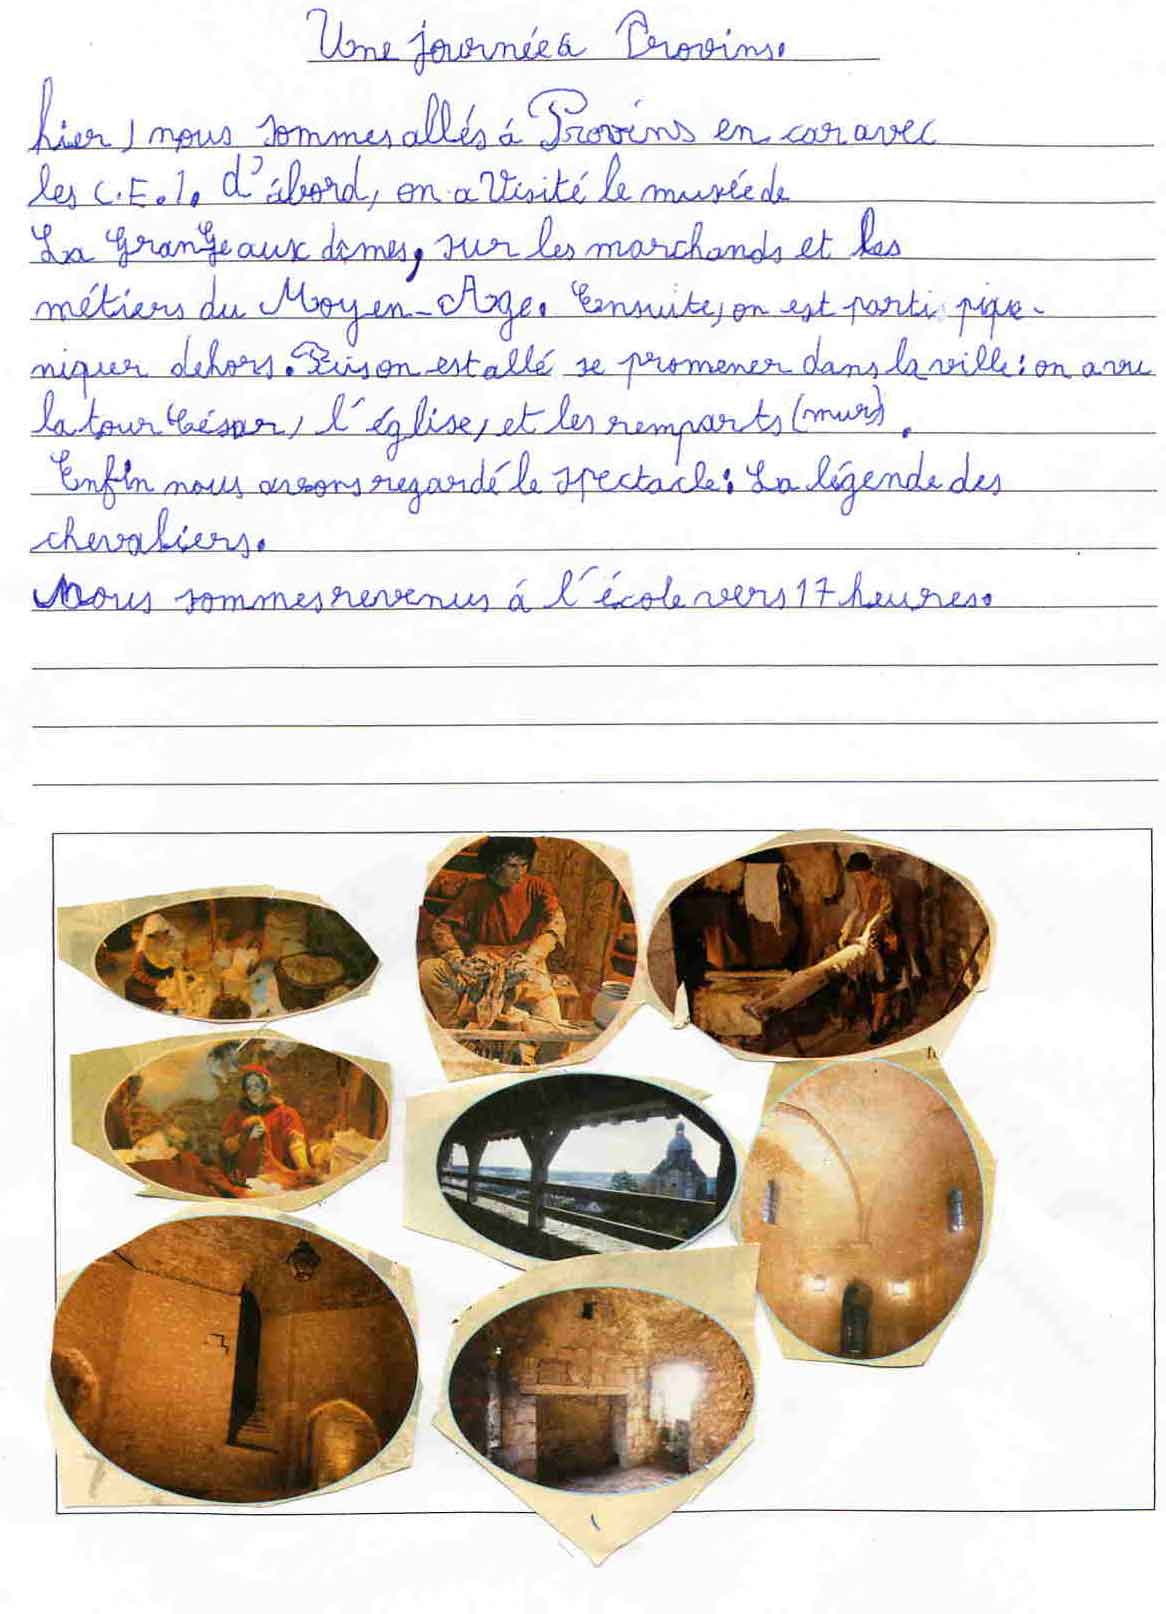 Une journée à Provins.
hier, nous sommes allés à Provins en car avec
les C.E.1. d'abord, on a Visité le musée de
La GranGe aux dîmes, sur les marchands et les
métiers du Moyen-Age. Ensuite, on est parti pique-
niquer dehors. Puis on est allé se promener dans la ville : on a vu
la tour César, l'église, et les remparts (murs).
Enfin nous avons regardé le spectacle : La légende des
chevaliers.
Nous sommes revenus à l'école vers 17 heures.